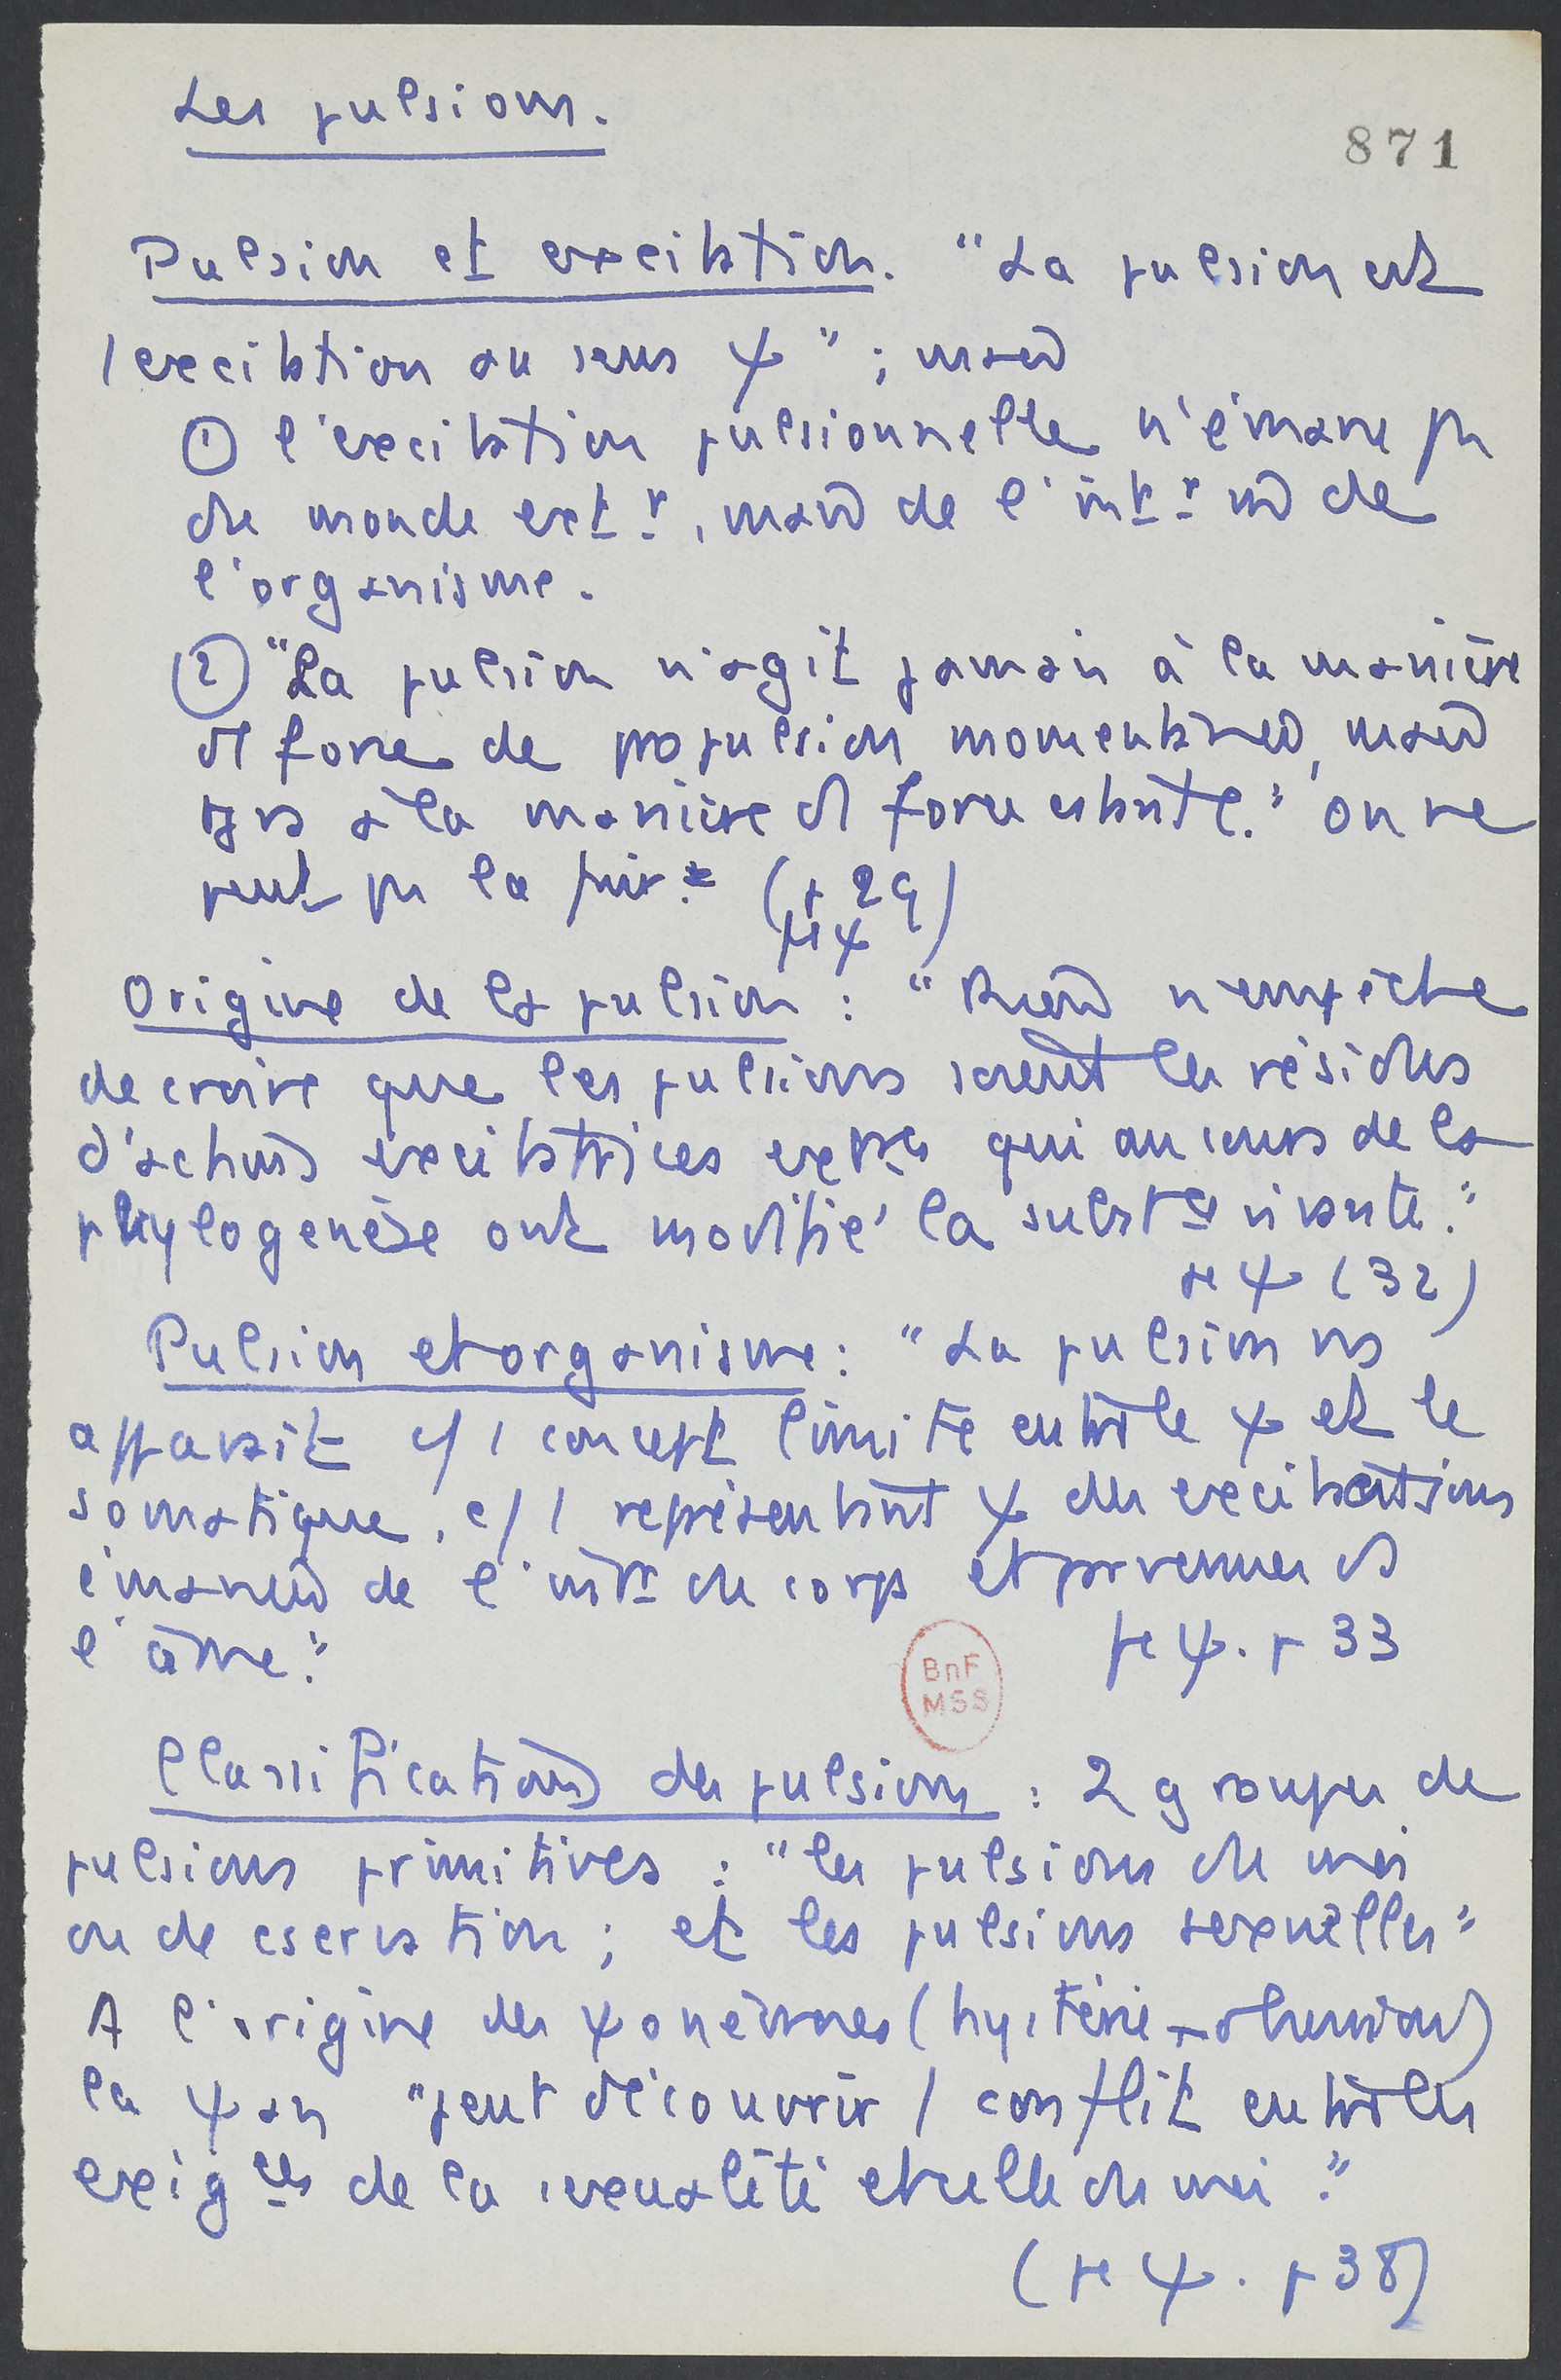 Les pulsions.
871
Pulsion et excitation. "La pulsion est
1 excitation au sens ψ" ; mais
① l'excitation pulsionnelle n'émane pas
du monde extr, mais de l'intr de
l'organisme.
② "La pulsion n'agit jamais à la manière
force de propulsion momentanée, mais
tjrs à la manière force cstante." on ne
peut pas la fuir. (p 29)
Mψ
Origine de la pulsion : "Rien n'empêche
de croire que les pulsions soient les résidus
d'actions excitatrices extres qui au cours de la
phylogenèse ont modifié la substce vivante."
Mψ (32)
Pulsion et organisme : "La pulsion ns
apparait c/ 1 concept limite entre le ψ et le
somatique, c/ 1 représentant ψ des excitations
émanées de l'intr du corps et parvenues ds
l'âme."
Mψ. p 33
BnF
MSS
Classification des pulsions : 2 groupes de
pulsions primitives : "les pulsions du moi
ou de cservation ; et les pulsions sexuelles"
A l'origine des ψonévroses (hystérie - obsession)
la ψan "peut découvrir 1 conflit entre les
exigces de la sexualité et celles du moi."
(Mψ. p 38)